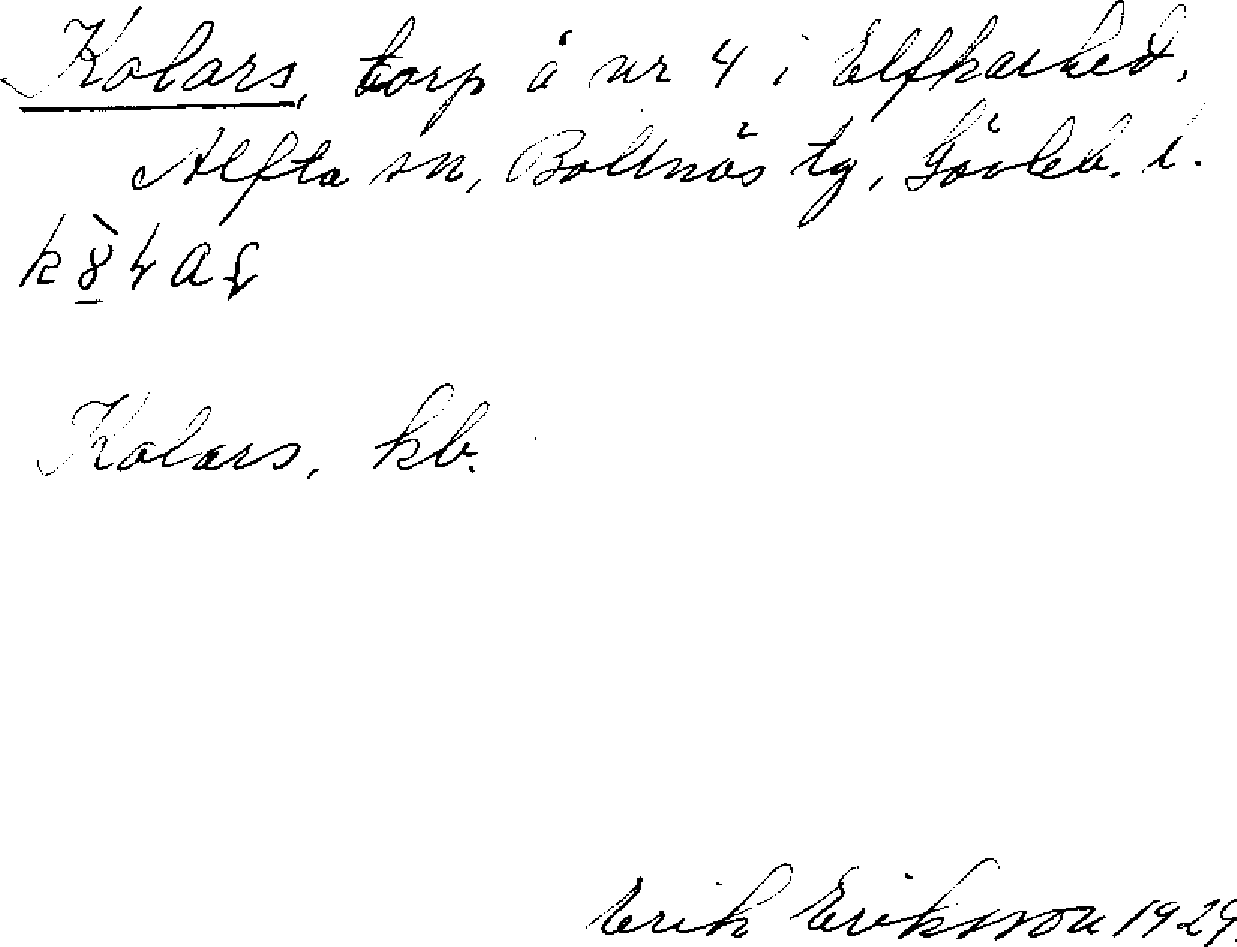 Kolars, torp å nr 4 i Elfkarhed,
Alfta sn, Bollnäs tg, Gävleb. l.
Kolars, kb.
Erik Eriksson 1929.